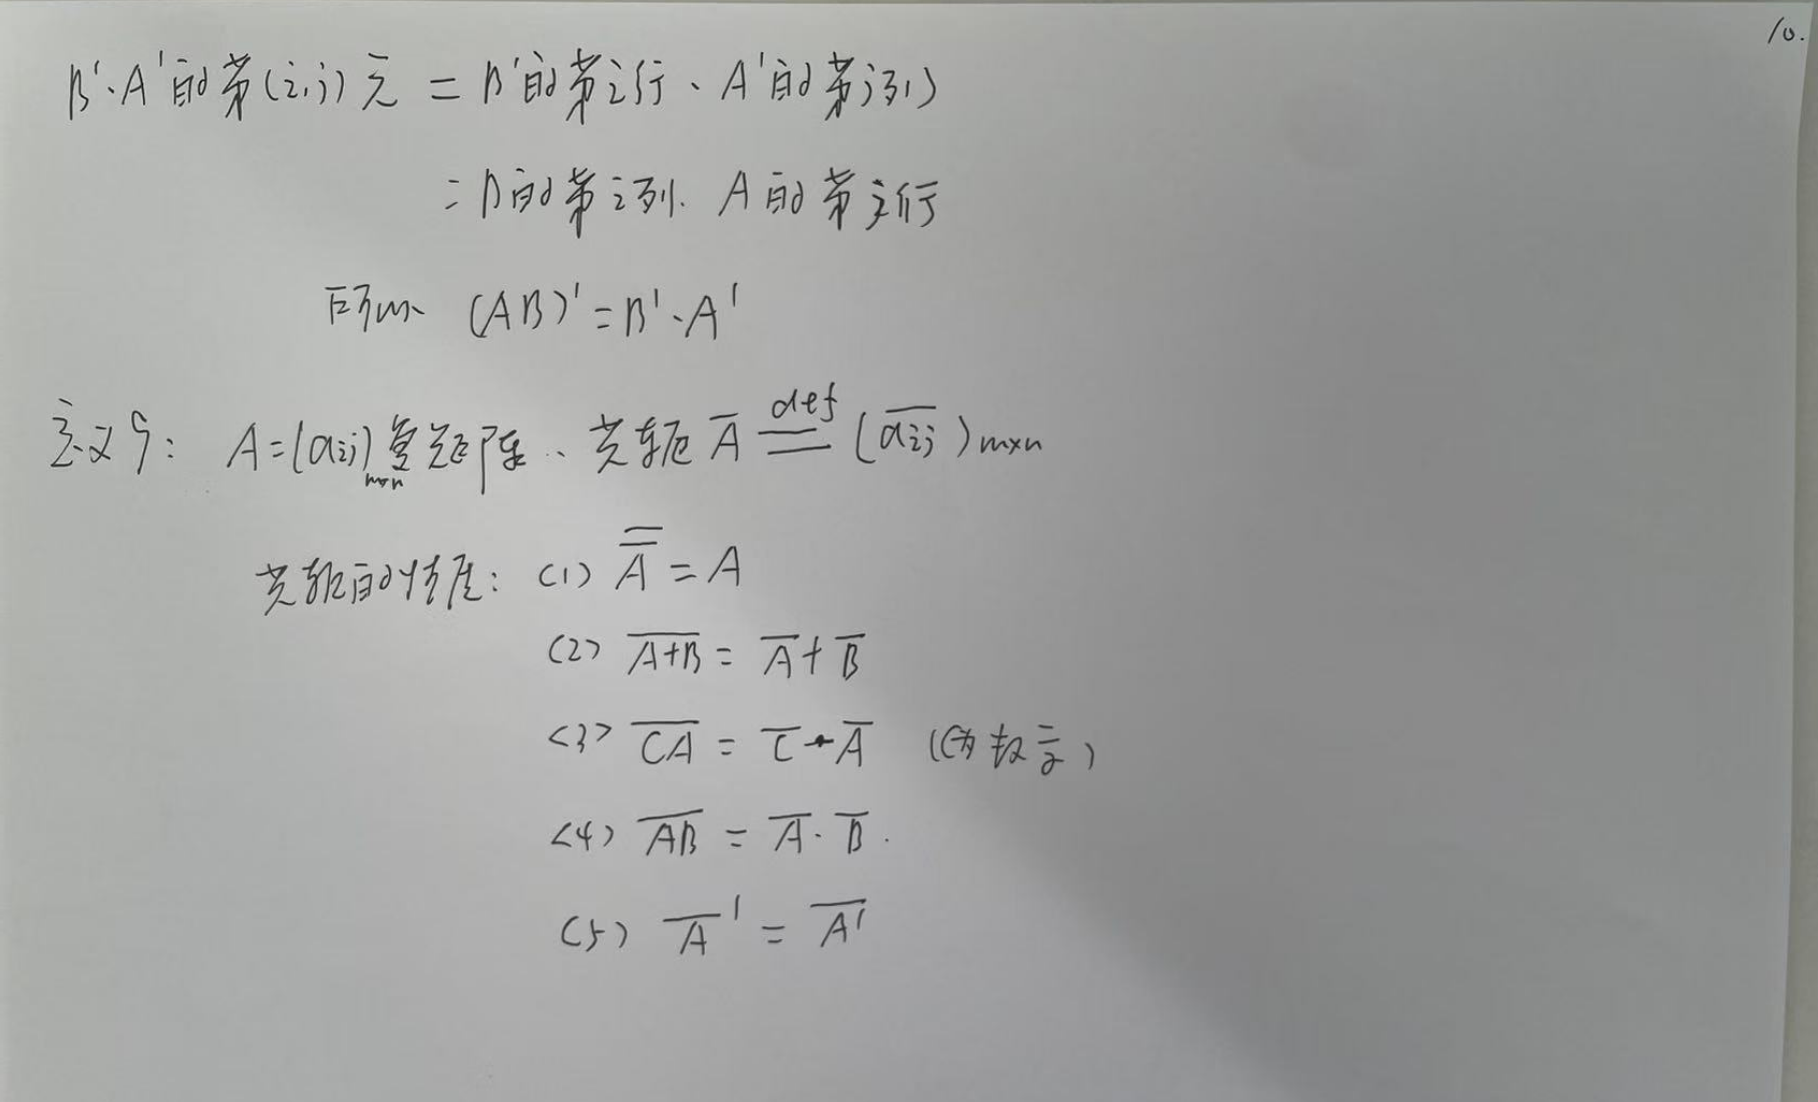 10.
B'·A'的第(i,j)元 = B'的第i行·A'的第j列
= B的第i列·A的第j行
所以 (AB)' = B'·A'
定义9: A=(aij)m×n复矩阵、共轭 A̅ def== (a̅i̅j̅)m×n
共轭的性质: (1) A̿ = A
(2) A̅+̅B̅ = A̅+B̅
(3) C̅A̅ = C̅·A̅ (C为数字)
(4) A̅B̅ = A̅·B̅.
(5) A̅' = A̅'̅